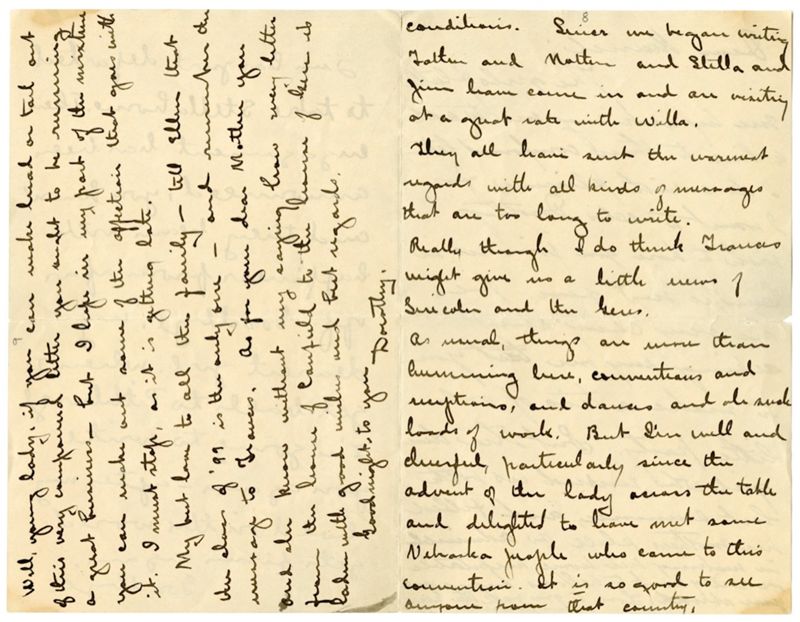 8
conditions. Since we began writing
Father and Mother and Stella and
Jim have come in and are visiting
at a great rate with Willa.
They all have sent the warmest
regards with all kinds of messages
that are too long to write.
Really though I do think Frances
might give us a little news of
Lincoln and the Geres.
As usual, things are more than
humming here, conventions and
receptions, and dances and oh such
loads of work. But I'm well and
cheerful, particularly since the
advent of the lady across the table
and delighted to have met some
Nebraska people who came to this
convention. It is so good to see
anyone from that country.
9
Well, young lady, if you can make head or tail out
of this very compound letter you ought to be running
a great business - but I hope in my part of the mixture
you can make out some of the affection that goes with
it. I must stop, as it is getting late.
My best love to all the family - tell Ellen that
the class of '99 is the only one - and remember the
message to Frances. As for your dear Mother, you
and she know without my saying how every letter
from the house of Canfield to the house of Gere is
laden with good wishes and best regards.
Good night to you
Dorothy.